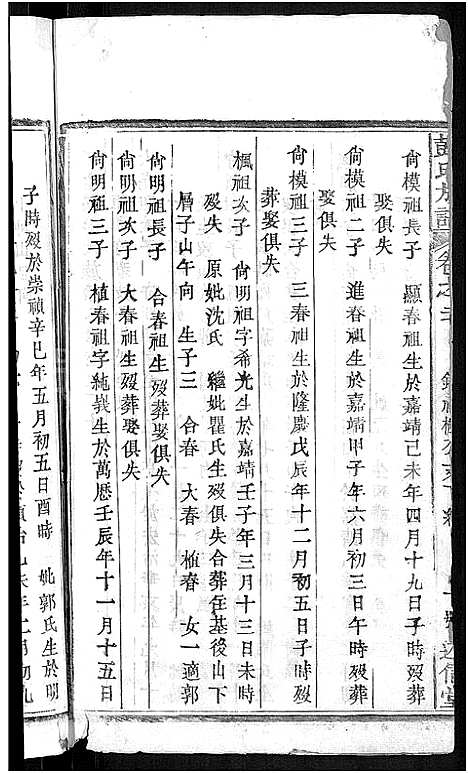 彭氏族譜
卷之
尙模祖長子 顯春祖生於嘉靖己未年四月十九日子時歿葬
娶俱失
尙模祖二子 進春祖生於嘉靖甲子年六月初三日午時歿葬
娶俱失
尙模祖三子 三春祖生於隆慶戊辰年十二月初五日子時歿
葬娶俱失
楓祖次子 尙明祖字希光生於嘉靖壬子年三月十三日未時
歿失 原妣沈氏 繼妣瞿氏生歿俱失合葬在基後山下
層子山午向 生子三 合春 大春 植春 女一適郭
尙明祖長子 合春祖生歿葬娶俱失
尙明祖次子 大春祖生歿葬娶俱失
尙明祖三子 植春祖字純義生於萬曆壬辰年十一月十五日
子時歿於崇禎辛巳年五月初五日酉時 妣郭氏生於明